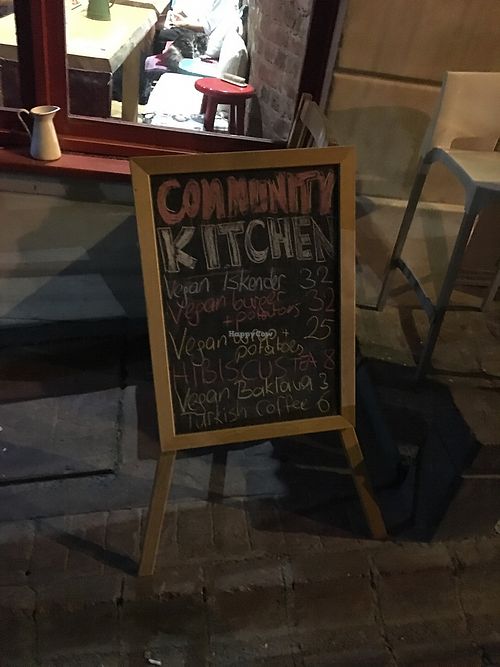 COMMUNITY
KITCHEN
Vegan Iskender 32
Vegan burger 32
+ potatoes
HappyCow
Vegan + 25
potatoes
HIBISCUS Tea 8
Vegan Baklava 3
Turkish Coffee 6